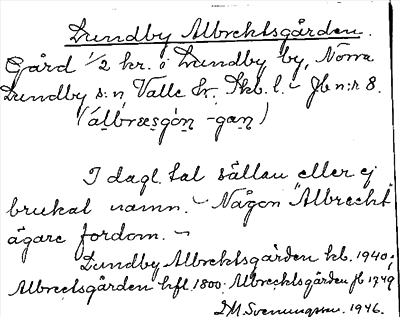 Lundby Albrechtsgården.
Gård 1/2 kr. i Lundby by, Norra
Lundby s:n, Valle hr. Skb. l. – Jb n:r 8.
(álbræsgò̱n -gan)
I dagl. tal sällan eller ej
brukat namn. – Någon "Albrecht"
ägare fordom. –
Lundby Albrechtsgården kb. 1940;
Albrectsgården hfl. 1800. Albrechtsgården jb 1749
D M Svenungsson. 1946.